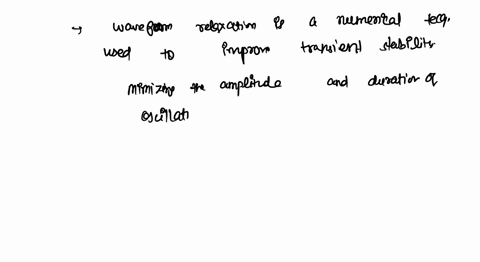 → waveform relaxation is a numerical teq.
used to improm transient stability
minimizing the amplitude and duration of
oscillati